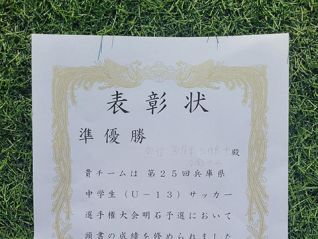 表彰状
準優勝
殿
貴チームは第25回兵庫県
中学生（U－13）サッカー
選手権大会明石予選において
頭書の成績を修められました